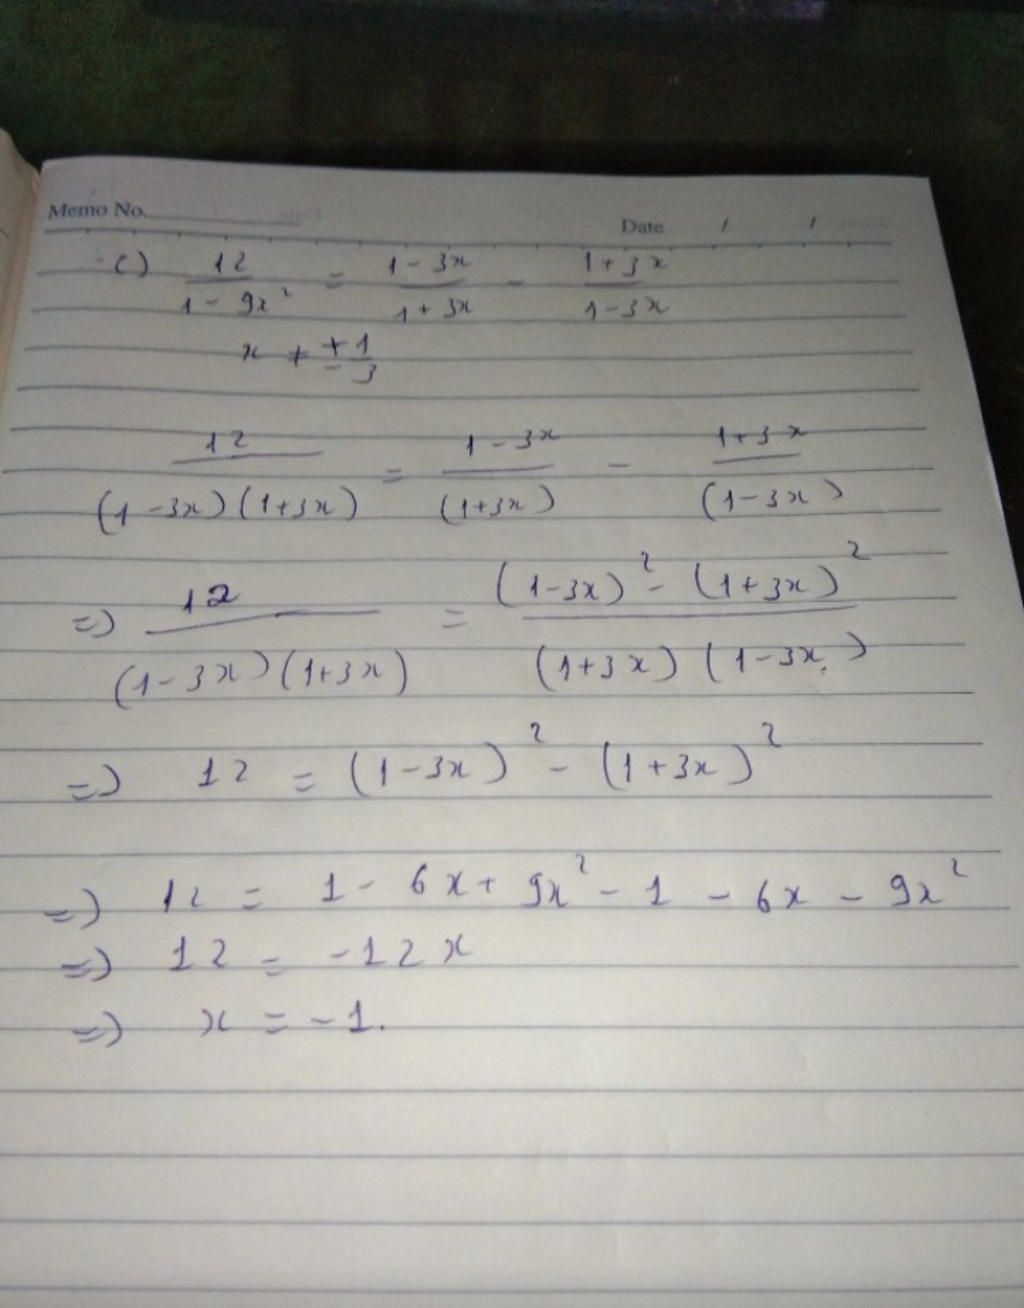 Memo No.
Date / /
c) 12/(1 - 9x²) = (1 - 3x)/(1 + 3x) - (1 + 3x)/(1 - 3x)
x ≠ ±1/3
12/((1 - 3x)(1 + 3x)) = (1 - 3x)/((1 + 3x)) - (1 + 3x)/((1 - 3x))
=) 12/((1 - 3x)(1 + 3x)) = ((1 - 3x)² - (1 + 3x)²)/((1 + 3x)(1 - 3x))
=) 12 = (1 - 3x)² - (1 + 3x)²
=) 12 = 1 - 6x + 9x² - 1 - 6x - 9x²
=) 12 = -12x
=) x = -1.